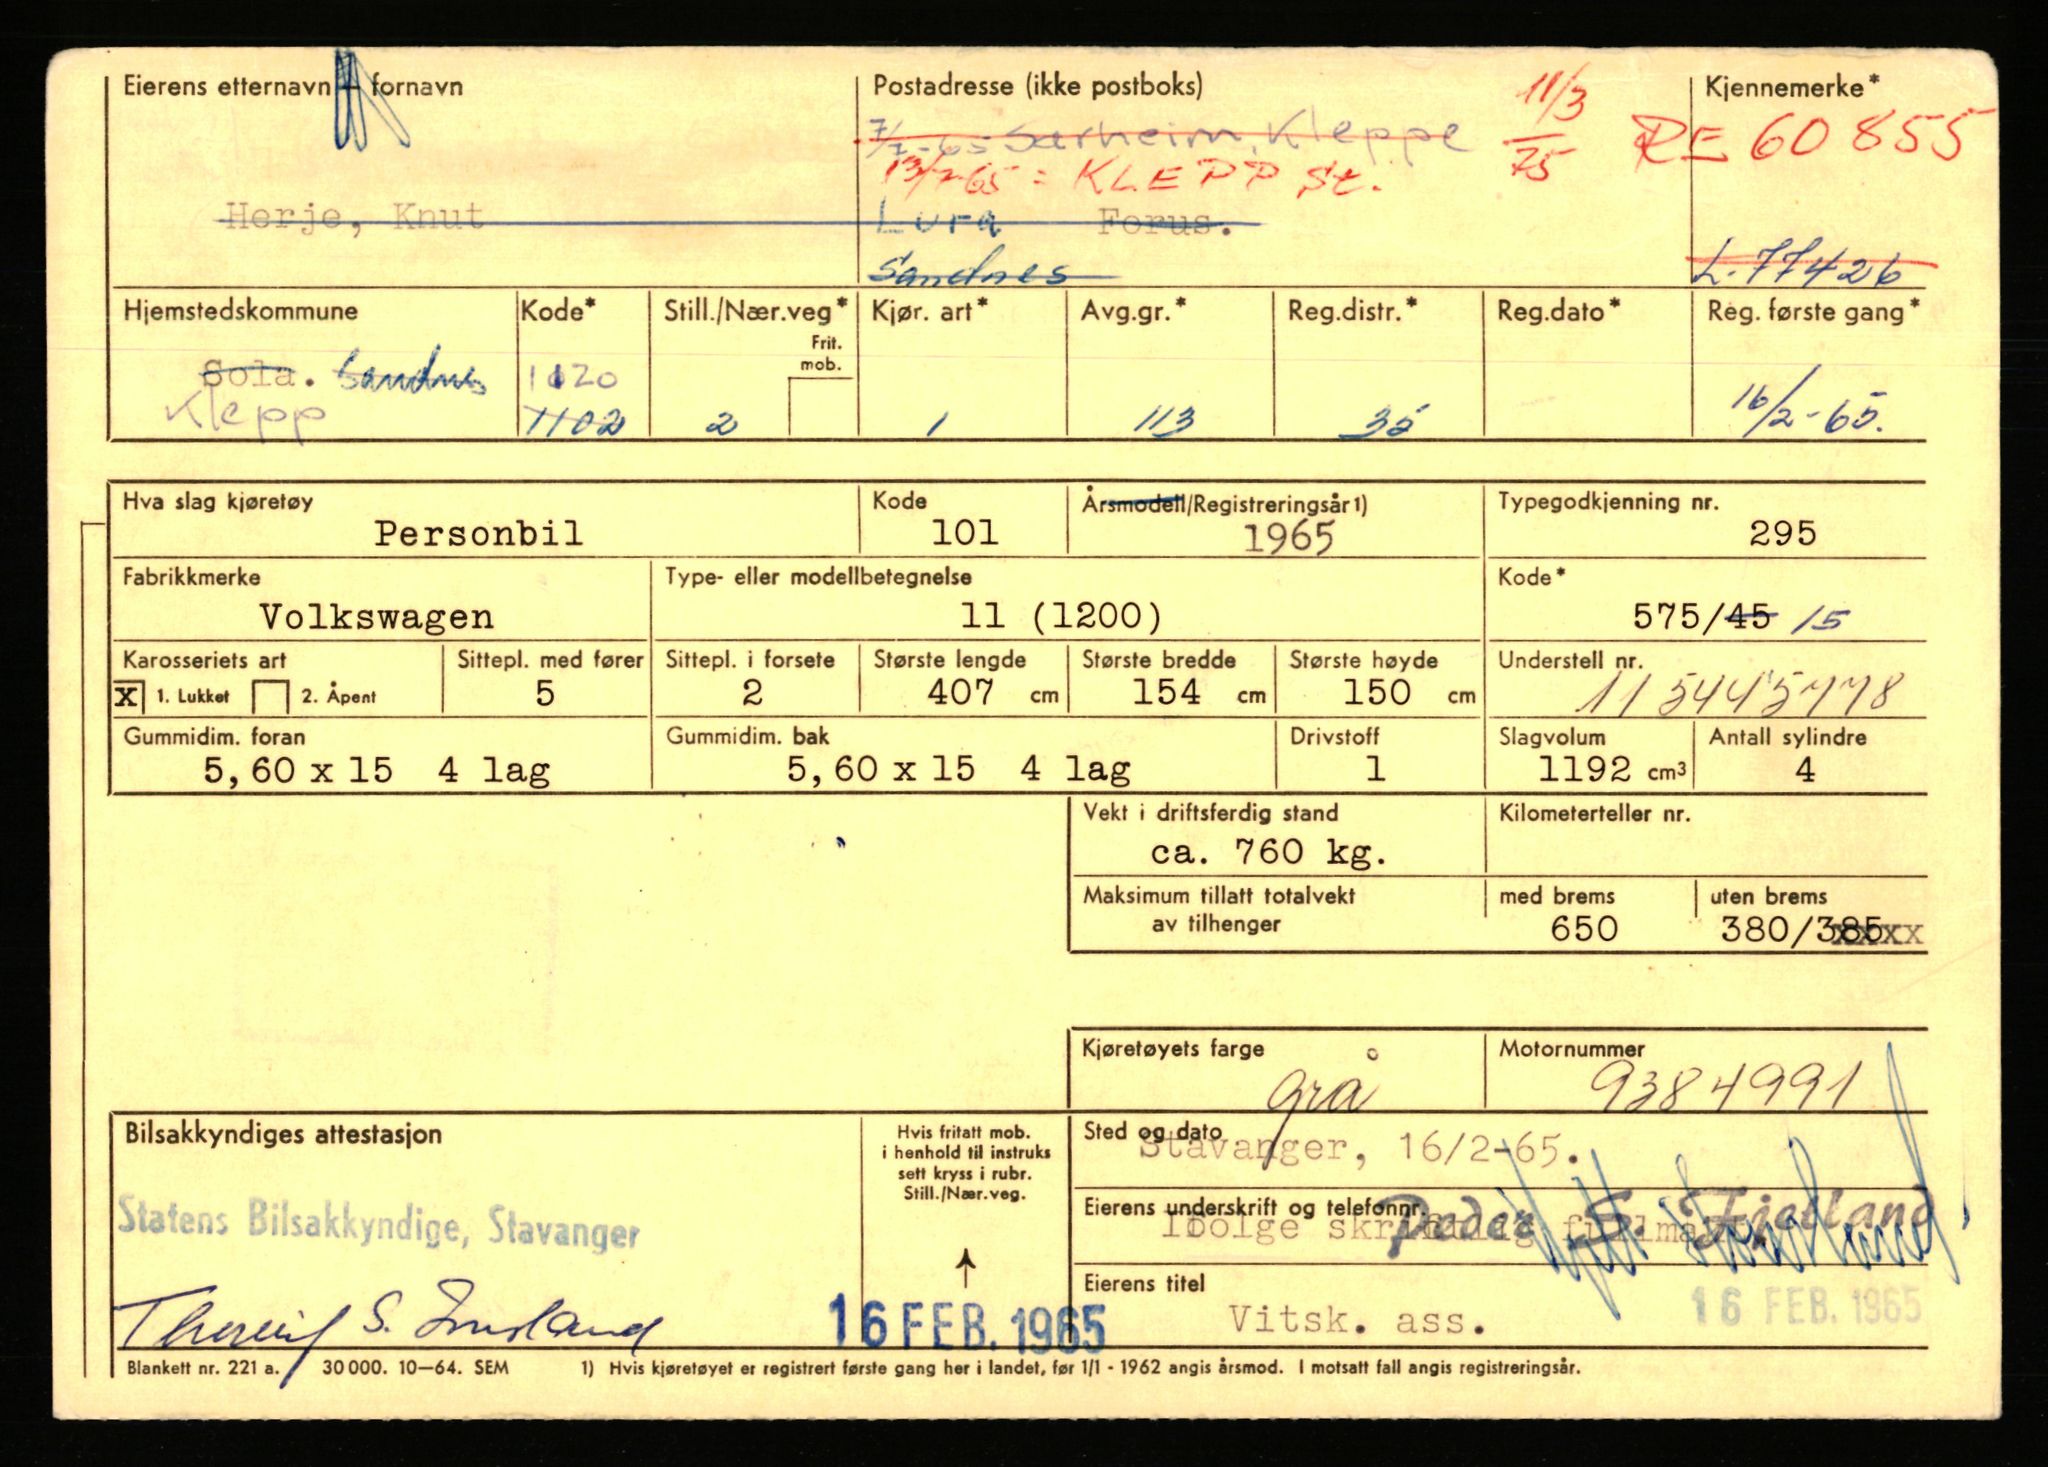 Eierens etternavn – fornavn
Postadresse (ikke postboks)
Kjennemerke*
11/3 75
RE 60855
7/7-65 = Sørheim, Kleppe
13/7-65 = KLEPP St.
Herje, Knut
Lura Forus.
Sandnes
L-77426
Hjemstedskommune
Kode*
Still./Nær.veg*
Frit. mob.
Kjør. art*
Avg.gr.*
Reg.distr.*
Reg.dato*
Reg. første gang*
Sola. Sandnes 1120
Klepp 1102 2 1 113 35 16/2-65.
Hva slag kjøretøy
Kode
Årsmodell/Registreringsår 1)
Typegodkjenning nr.
Personbil 101 1965 295
Fabrikkmerke
Type- eller modellbetegnelse
Kode*
Volkswagen 11 (1200) 575/45 15
Karosseriets art
Sittepl. med fører
Sittepl. i forsete
Største lengde
Største bredde
Største høyde
Understell nr.
X 1. Lukket 2. Åpent 5 2 407 cm 154 cm 150 cm 115445778
Gummidim. foran
Gummidim. bak
Drivstoff
Slagvolum
Antall sylindre
5,60 x 15 4 lag 5,60 x 15 4 lag 1 1192 cm³ 4
Vekt i driftsferdig stand
Kilometerteller nr.
ca. 760 kg.
Maksimum tillatt totalvekt
av tilhenger
med brems
uten brems
650 380/385xx
Kjøretøyets farge
Motornummer
grå 9384991
Bilsakkyndiges attestasjon
Hvis fritatt mob.
i henhold til instruks
sett kryss i rubr.
Still./Nær.veg.
Sted og dato
Stavanger, 16/2-65.
Statens Bilsakkyndige, Stavanger
Eierens underskrift og telefonnr.
Ifølge skriftlig fullmakt
Peder S. Fjelland
Eierens titel
Vitsk. ass.
16 FEB. 1965
16 FEB. 1965
Blankett nr. 221 a. 30 000. 10–64. SEM
1) Hvis kjøretøyet er registrert første gang her i landet, før 1/1 - 1962 angis årsmod. I motsatt fall angis registreringsår.